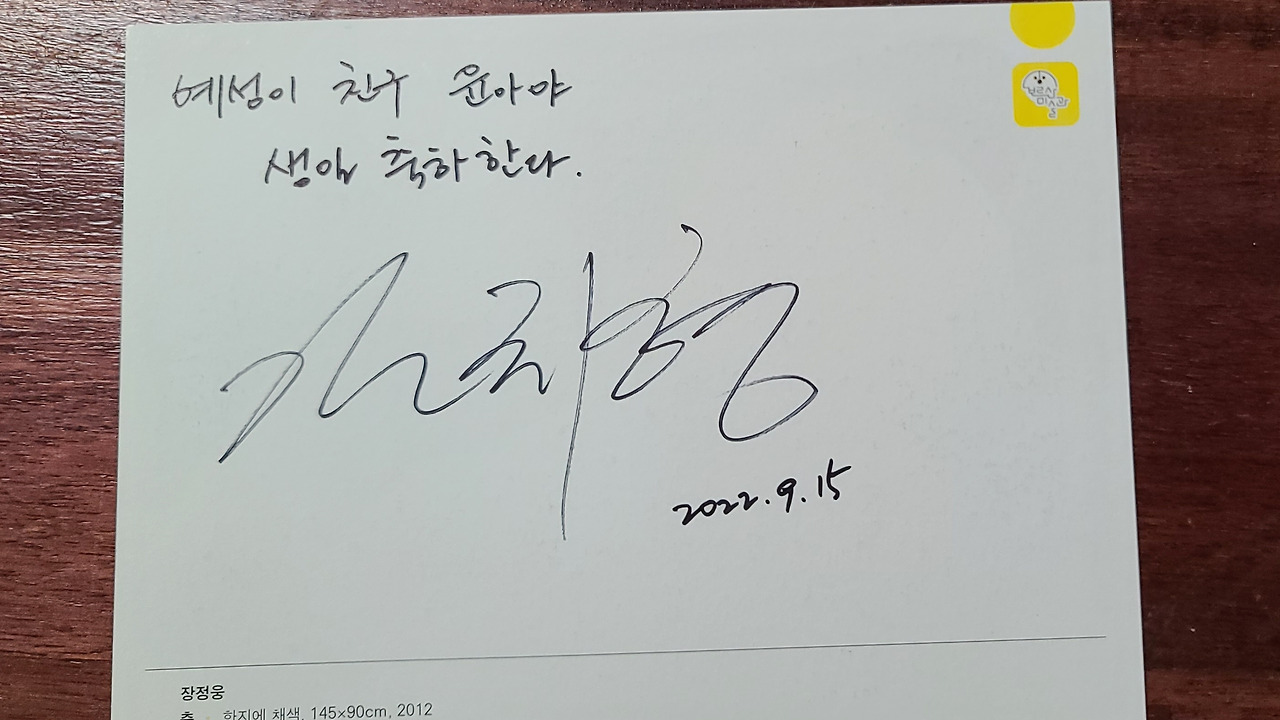 예성이 친구 윤아야
생일 축하한다.
2022.9.15
장정웅
한지에 채색, 145×90cm, 2012